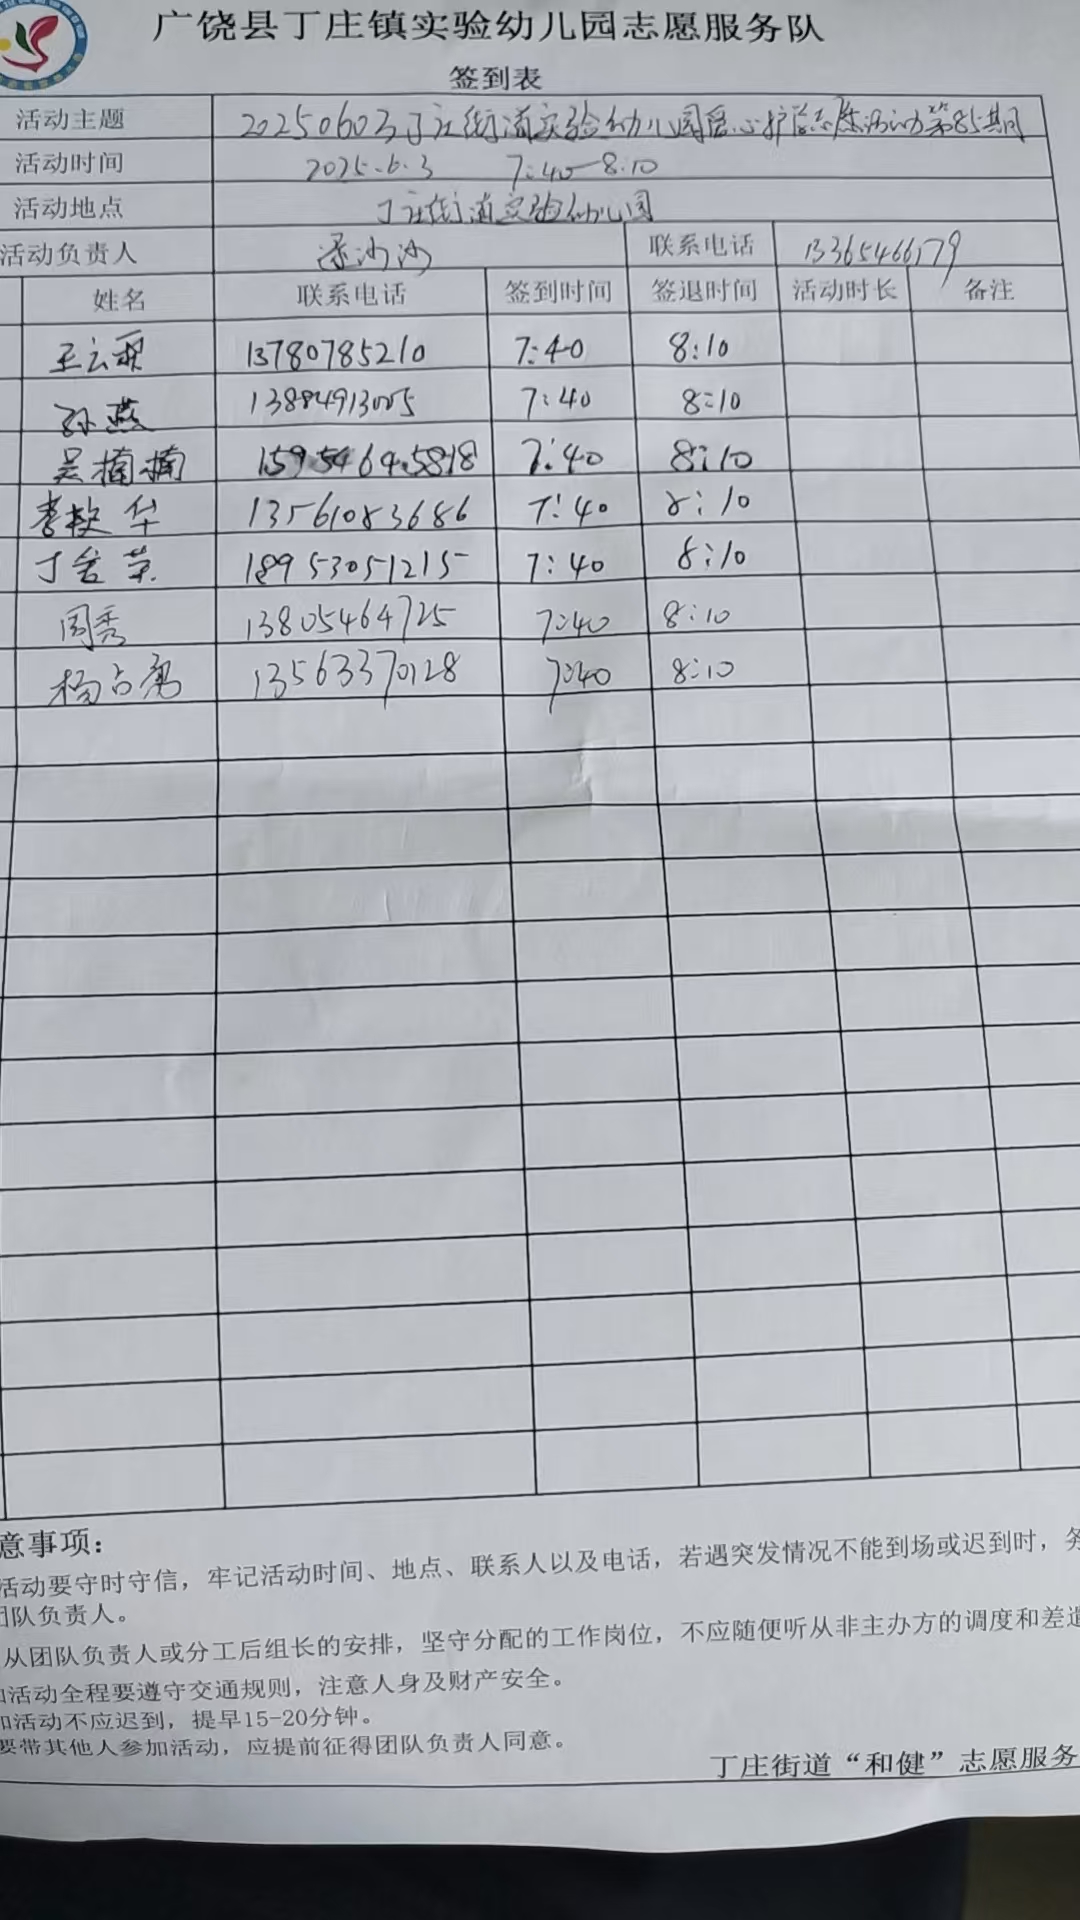 广饶县丁庄镇实验幼儿园志愿服务队
签到表
活动主题 20250603丁庄街道实验幼儿园爱心护学志愿活动第85期
活动时间 2025.6.3 7:40-8:10
活动地点 丁庄街道实验幼儿园
活动负责人 沙沙 联系电话 13365466179
姓名 联系电话 签到时间 签退时间 活动时长 备注
王云 13780785210 7:40 8:10
孙燕 13884913005 7:40 8:10
吴楠楠 15954645818 7:40 8:10
华 13561083686 7:40 8:10
丁 荣 18953051215 7:40 8:10
周秀 13805464725 7:40 8:10
杨占亮 13563370128 7:40 8:10
意事项：
活动要守时守信，牢记活动时间、地点、联系人以及电话，若遇突发情况不能到场或迟到时，务
团队负责人。
从团队负责人或分工后组长的安排，坚守分配的工作岗位，不应随便听从非主办方的调度和差遣
加活动全程要遵守交通规则，注意人身及财产安全。
加活动不应迟到，提早15-20分钟。
要带其他人参加活动，应提前征得团队负责人同意。
丁庄街道“和健”志愿服务